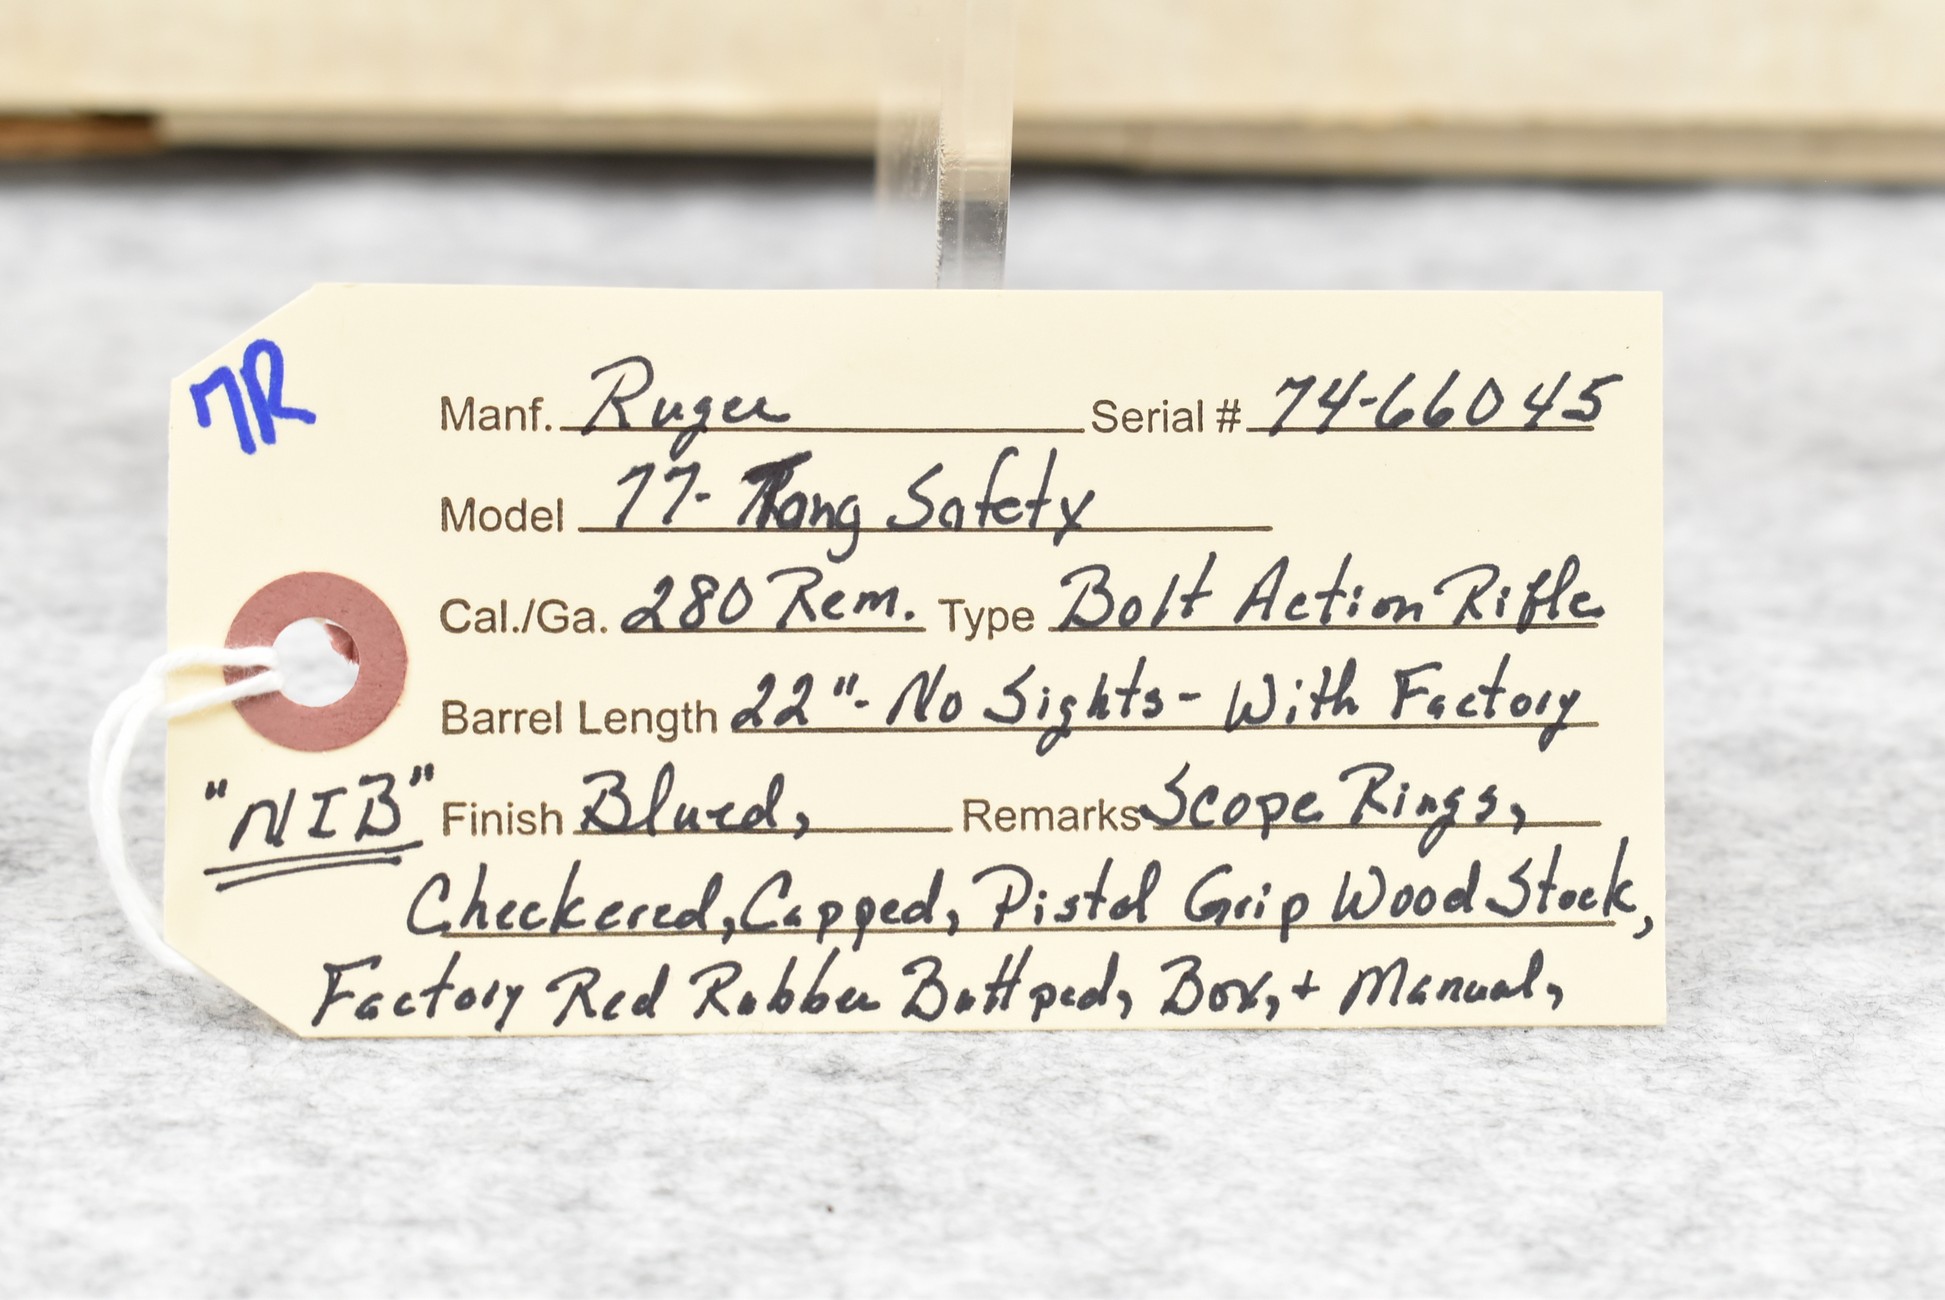 7R
Manf. Ruger Serial # 74-66045
Model 77- Tang Safety
Cal./Ga. 280 Rem. Type Bolt Action Rifle
Barrel Length 22"- No Sights - With Factory
"NIB" Finish Blued, Remarks Scope Rings,
Checkered, Capped, Pistol Grip Wood Stock,
Factory Red Rubber Buttped, Box, + Manual,